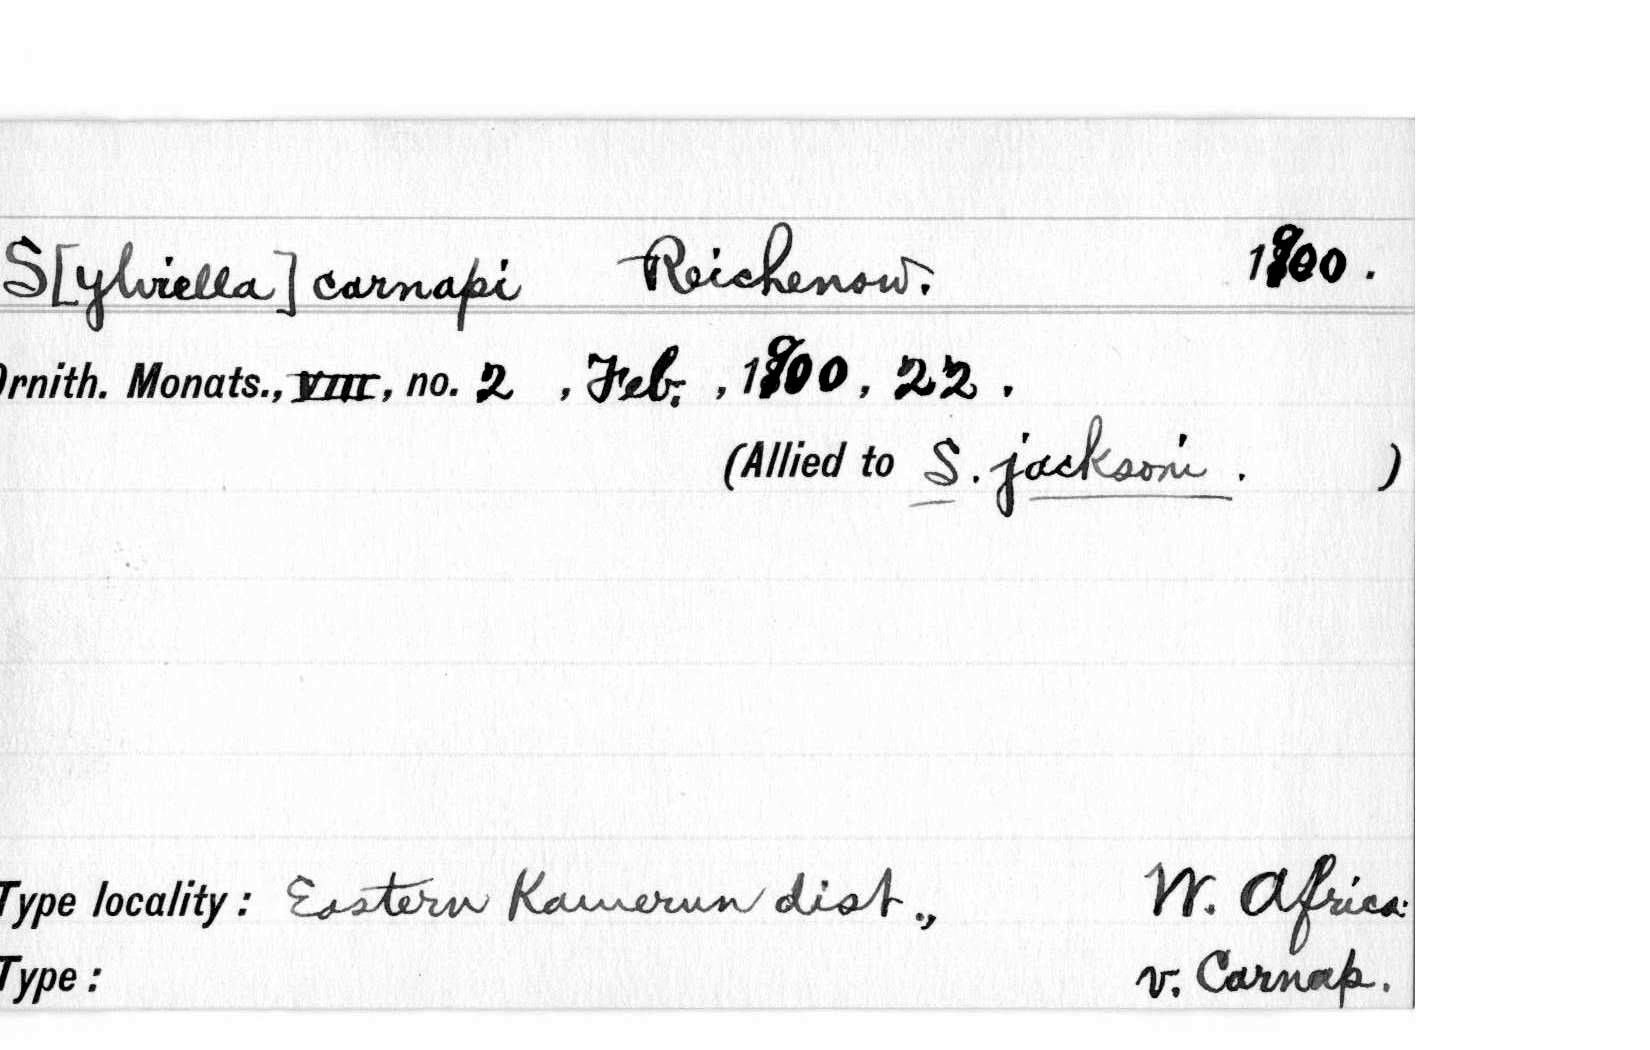 S[ylviella] carnapi Reichenow. 1900.
Ornith. Monats., VIII, no. 2 , Feb. , 1900 , 22 .
(Allied to S. jacksoni . )
Type locality : Eastern Kamerun dist., W. Africa.
Type : v. Carnap.